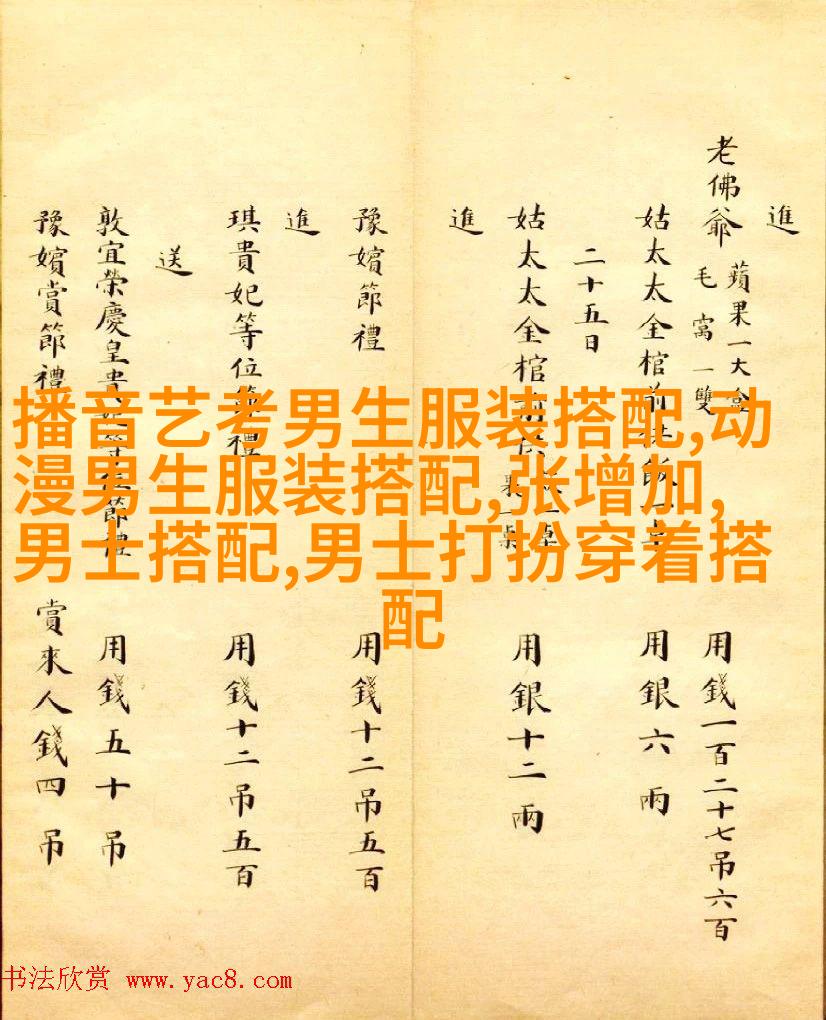 進
老佛爺 蘋果一大盒
毛窩一雙
用錢一百二十七吊六百
姑太太金棺前供飯一桌 用銀六兩
二十五日
姑太太金棺前 一桌
一桌
用銀十二兩
進
豫嬪節禮 用錢十二吊五百
進
琪貴妃等位節禮 用錢十二吊五百
送
敦宜榮慶皇貴妃等位節禮 用錢五十吊
豫嬪賞節禮 賞來人錢四吊
播音艺考男生服装搭配,动
漫男生服装搭配,张增加,
男士搭配,男士打扮穿着搭
配
书法欣赏 www.yac8.com